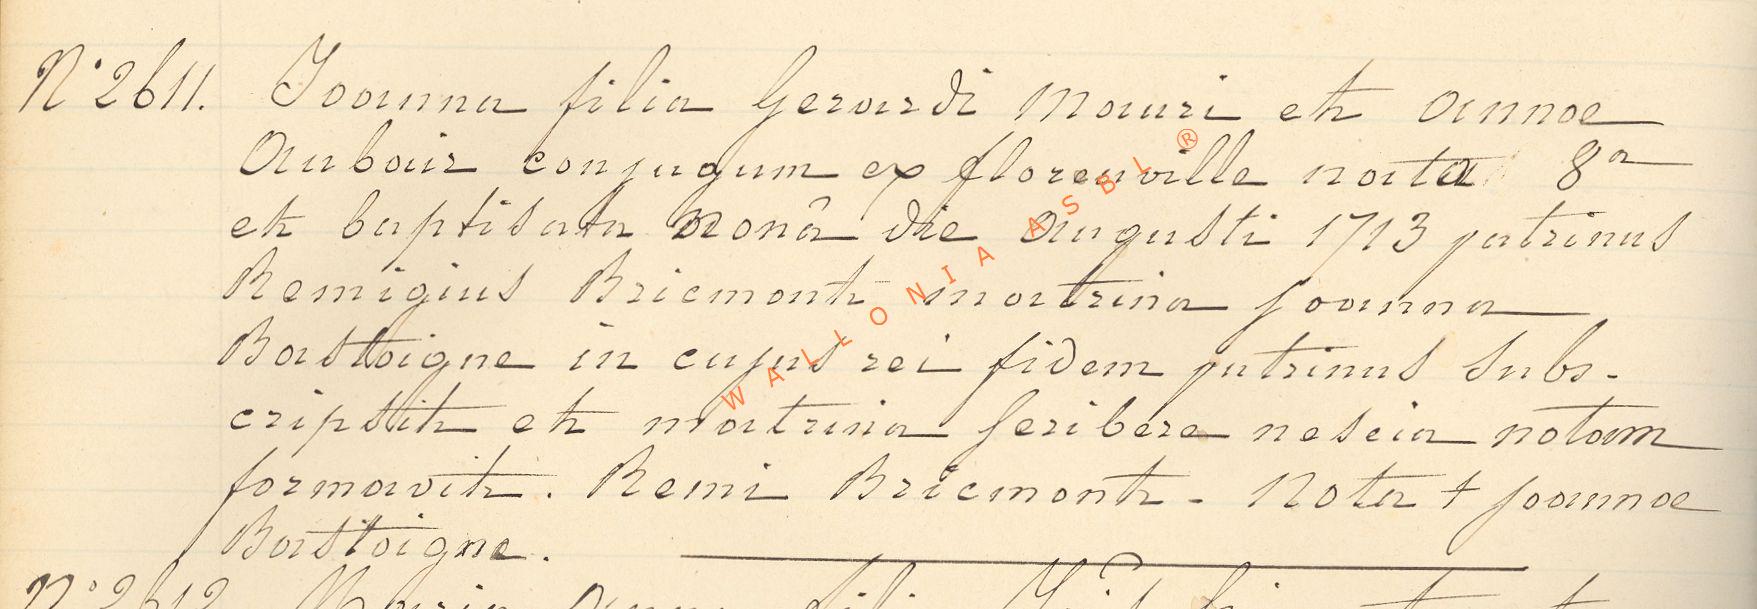 N° 2611. Joanna filia Gerardi Mauri et annae
Aubair conjugum ex florenville nata 8a
et baptisata nonâ die augusti 1713 patrinus
Remigius Bricmont matrina joanna
Bastoigne in cujus rei fidem patrinus subs-
cripsit et matrina scribere nescia notam
formavit. Remi Bricmont - Nota + joannae
Bastoigne.
N° 2612. Maria Anna filia
WALLONIA ASBL ®